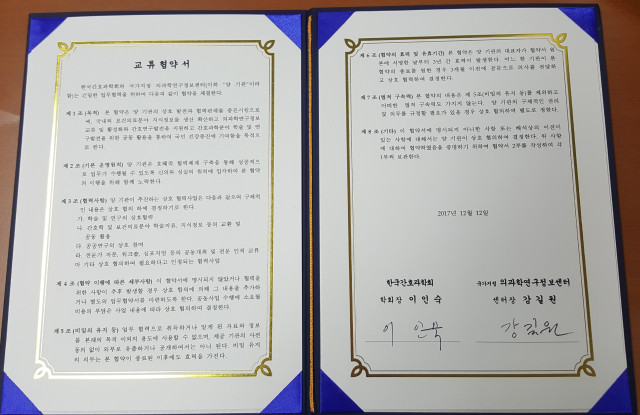 교류협약서
한국간호과학회와 국가지정 의과학연구정보센터(이하 "양 기관"이라
함)는 긴밀한 업무협력을 위하여 다음과 같이 협약을 체결한다.
제1조 (목적) 본 협약은 양 기관의 상호 발전과 협력관계를 증진시킴으로
써, 국내외 보건의료분야 지식정보를 생산 확산하고 의과학연구정보
교류 및 활성화와 간호연구발전을 지원하고 간호과학분야 학술 및 연
구발전을 위한 공동 활동을 통하여 국민 건강증진에 기여함을 목적으
로 한다.
제2조 (기본 운영원칙) 양 기관은 호혜적 협력체계 구축을 통해 성공적으
로 업무가 수행될 수 있도록 신의와 성실의 원칙에 입각하여 본 협약
의 이행을 위해 함께 노력한다.
제3조 (협력사항) 양 기관이 추진하는 상호 협력사업은 다음과 같으며 구체적
인 내용은 상호 협의 하에 결정하기로 한다.
가. 학술 및 연구의 상호협력
나. 간호학 및 보건의료분야 학술자료, 지식정보 등의 교환 및
공동 활용
다. 공공연구의 상호 참여
라. 전문가 자문, 워크숍, 심포지엄 등의 공동개최 및 전문 인적 교류
마. 기타 상호 협의하여 필요하다고 인정되는 협력사업
제4조 (협약 이행에 따른 세부사항) 이 협약서에 명시되지 않았거나 협력을
위한 사항이 추후 발생할 경우 상호 협의에 의해 그 내용을 추가하
거나 별도의 업무협약서를 마련하도록 한다. 공동사업 수행에 소요될
비용의 부담은 사업 내용에 따라 상호 협의하여 결정한다.
제5조 (비밀의 유지 등) 업무 협력으로 취득하거나 알게 된 자료와 정보
를 본래의 목적 이외의 용도에 사용할 수 없으며, 제공 기관의 사전
동의 없이 외부로 유출하거나 공개하여서는 아니 된다. 비밀 유지
의 의무는 본 협약이 종료된 이후에도 효력을 가진다.
제6조 (협약의 효력 및 유효기간) 본 협약은 양 기관의 대표자가 협약서 원
본에 서명한 날부터 3년 간 효력이 발생한다. 어느 한 기관이 본
협약의 종료를 원한 경우 3개월 이전에 공문으로 의사를 전달하
고 상호 협의하여 결정한다.
제7조 (법적 구속력) 본 협약의 내용은 제5조(비밀의 유지 등)를 제외하고
어떠한 법적 구속력도 가지지 않는다. 양 기관의 구체적인 권리
및 의무를 규정할 필요가 있을 경우 상호 협의하여 별도로 정한다.
제8조 (기타) 이 협약서에 명시되지 아니한 사항 또는 해석상의 이견이
있는 사항에 대해서는 양 기관이 상호 협의하여 결정한다. 위 사항
에 대하여 협약하였음을 증명하기 위하여 협약서 2부를 작성하여 각
1부씩 보관한다.
2017년 12월 12일
한국간호과학회
학회장 이인숙
이인숙
국가지정 의과학연구정보센터
센터장 강길원
강길원